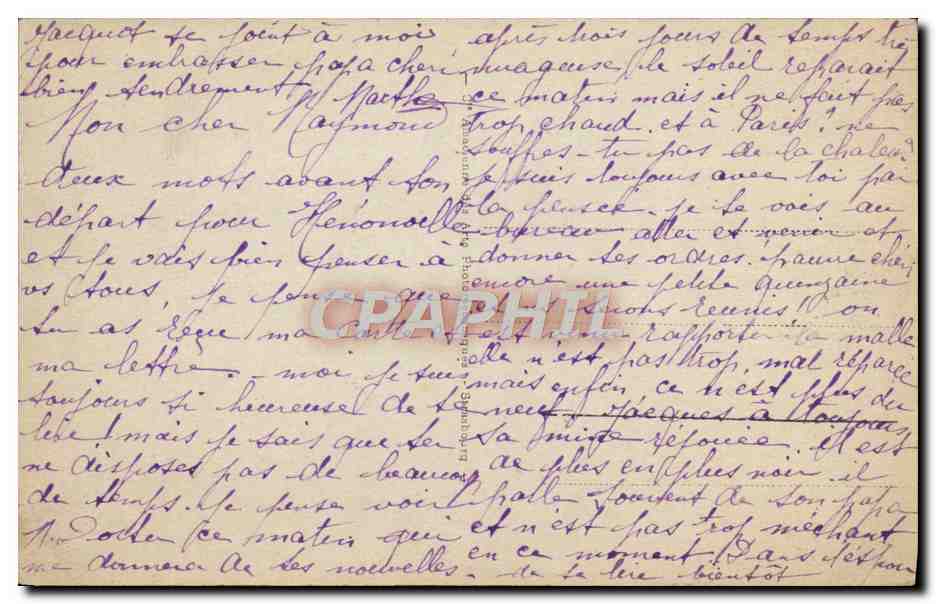 Jacquot se joint à moi
pour embrasser papa chéri
bien tendrement Marthe
Mon cher Raymond
deux mots avant ton
départ pour Hénonville
et je vais bien penser à
vs tous, je pense que
tu as reçu ma carte et
ma lettre. moi je suis
toujours si heureuse de te
lire! mais je sais que tu
ne disposes pas de beaucoup
de temps. je pense voir
ce matin qui
me donnera de tes nouvelles.
après trois jours de temps très
nuageux, le soleil reparait
ce matin mais il ne fait pas
trop chaud. et à Paris? ne
souffres-tu pas de la chaleur
je suis toujours avec toi par
la pensée. je te vois au
bureau aller et venir et
donner tes ordres. pauvre chéri
encore une petite quinzaine
et ns serons réunis! on
est venu rapporter la malle
elle n'est pas trop mal réparée
mais enfin ce n'est plus du
neuf. Jacques a toujours
sa mine réjouie. il est
de plus en plus noir. il
parle souvent de son papa
et n'est pas trop méchant
en ce moment Dans l'espoir
de te lire bientôt
CPARHIL